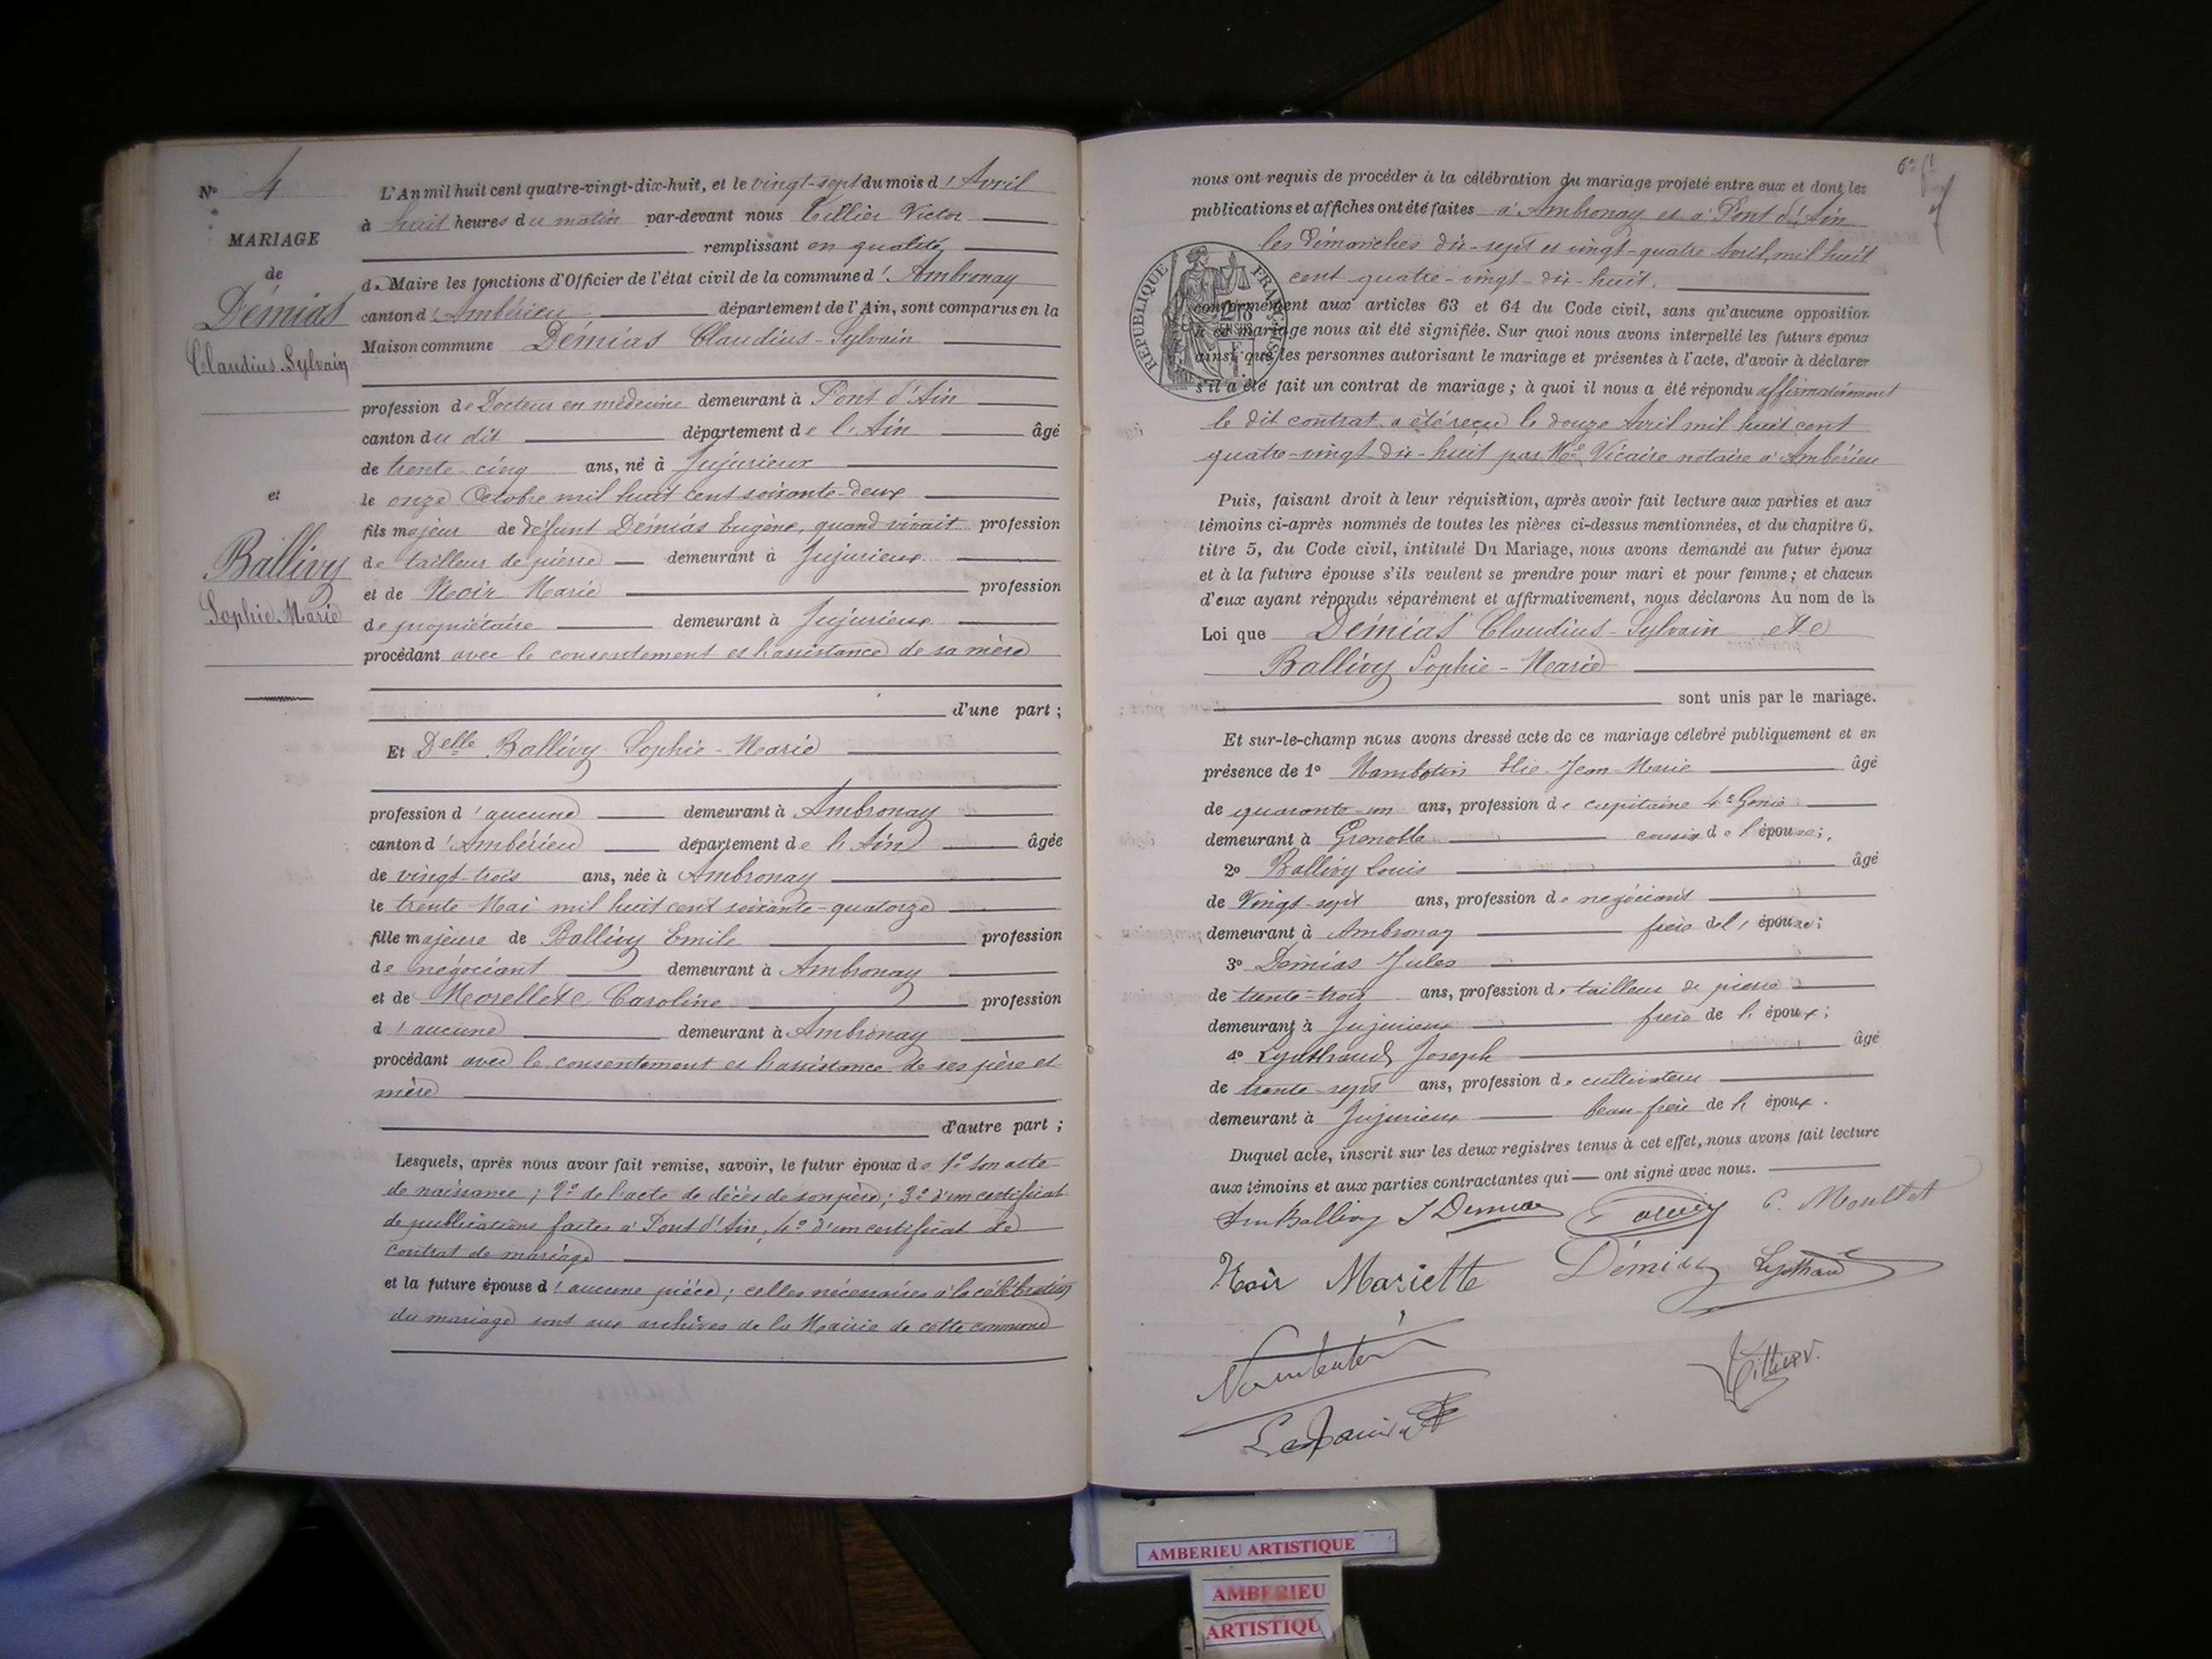 N° 4
MARIAGE
de
Démias
Claudius-Sylvain
et
Ballivy
Sophie-Marie
L'An mil huit cent quatre-vingt-dix-huit, et le vingt-sept du mois d'Avril
à huit heures du matin par-devant nous Tillier Victor
remplissant en qualité
de Maire les fonctions d'Officier de l'état civil de la commune d'Ambronay
canton d'Ambérieu département de l'Ain, sont comparus en la
Maison commune Démias Claudius-Sylvain
profession de Docteur en médecine demeurant à Pont d'Ain
canton du dit département de l'Ain âgé
de trente-cinq ans, né à Jujurieux
le onze Octobre mil huit cent soixante-deux
fils majeur de défunt Démias Eugène, quand vivait profession
de tailleur de pierre demeurant à Jujurieux
et de Noir Marie profession
de propriétaire demeurant à Jujurieux
procédant avec le consentement et l'assistance de sa mère
d'une part ;
Et Delle Ballivy Sophie-Marie
profession d'aucune demeurant à Ambronay
canton d'Ambérieu département de l'Ain âgée
de vingt-trois ans, née à Ambronay
le trente Mai mil huit cent soixante-quatorze
fille majeure de Ballivy Emile profession
de négociant demeurant à Ambronay
et de Morellet Caroline profession
d'aucune demeurant à Ambronay
procédant avec le consentement et l'assistance de ses père et
mère
d'autre part ;
Lesquels, après nous avoir fait remise, savoir, le futur époux de 1° son acte
de naissance ; 2° de l'acte de décès de son père ; 3° d'un certificat
de publications faites à Pont d'Ain, 4° d'un certificat de
contrat de mariage
et la future épouse d'aucune pièce ; celles nécessaires à la célébration
du mariage sont aux archives de la Mairie de cette commune
nous ont requis de procéder à la célébration du mariage projeté entre eux et dont les
publications et affiches ont été faites à Ambronay et à Pont d'Ain
les Dimanches dix-sept et vingt-quatre Avril, mil huit
cent quatre-vingt-dix-huit.
RÉPUBLIQUE FRANÇAISE
conformément aux articles 63 et 64 du Code civil, sans qu'aucune opposition
à ce mariage nous ait été signifiée. Sur quoi nous avons interpellé les futurs époux
ainsi que les personnes autorisant le mariage et présentes à l'acte, d'avoir à déclarer
s'il a été fait un contrat de mariage ; à quoi il nous a été répondu affirmativement
le dit contrat a été reçu le douze Avril mil huit cent
quatre-vingt dix-huit par Me Vicaire notaire à Ambérieu
Puis, faisant droit à leur réquisition, après avoir fait lecture aux parties et aux
témoins ci-après nommés de toutes les pièces ci-dessus mentionnées, et du chapitre 6,
titre 5, du Code civil, intitulé Du Mariage, nous avons demandé au futur époux
et à la future épouse s'ils veulent se prendre pour mari et pour femme ; et chacun
d'eux ayant répondu séparément et affirmativement, nous déclarons Au nom de la
Loi que Démias Claudius-Sylvain et
Ballivy Sophie-Marie
sont unis par le mariage.
Et sur-le-champ nous avons dressé acte de ce mariage célébré publiquement et en
présence de 1° Nambotin Elie Jean-Marie âgé
de quarante-un ans, profession de capitaine 4e Génie
demeurant à Grenoble cousin de l'épouse ;
2° Ballivy Louis âgé
de Vingt-sept ans, profession de négociant
demeurant à Ambronay frère de l'épouse ;
3° Démias Jules
de trente-trois ans, profession de tailleur de pierre
demeurant à Jujurieux frère de l'époux ;
4° Joseph âgé
de trente-sept ans, profession de cultivateur
demeurant à Jujurieux beau frère de l'époux.
Duquel acte, inscrit sur les deux registres tenus à cet effet, nous avons fait lecture
aux témoins et aux parties contractantes qui ont signé avec nous.
Ballivy C. Morellet
Noir Mariette Démias
Tillier V.
AMBERIEU ARTISTIQUE
AMBERIEU
ARTISTIQU